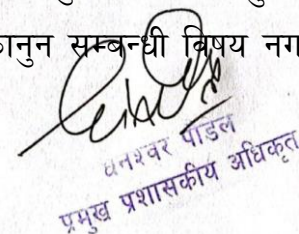 कानुन सम्बन्धी बिषय नग
धनेश्वर पौडेल
प्रमुख प्रशासकीय अधिकृत